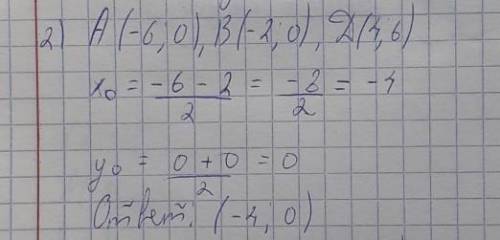 2) A(-6; 0), B(-2; 0), D(4; 6)
x₀ = (-6 - 2)/2 = -8/2 = -4
y₀ = (0 + 0)/2 = 0
Ответ: (-4; 0)